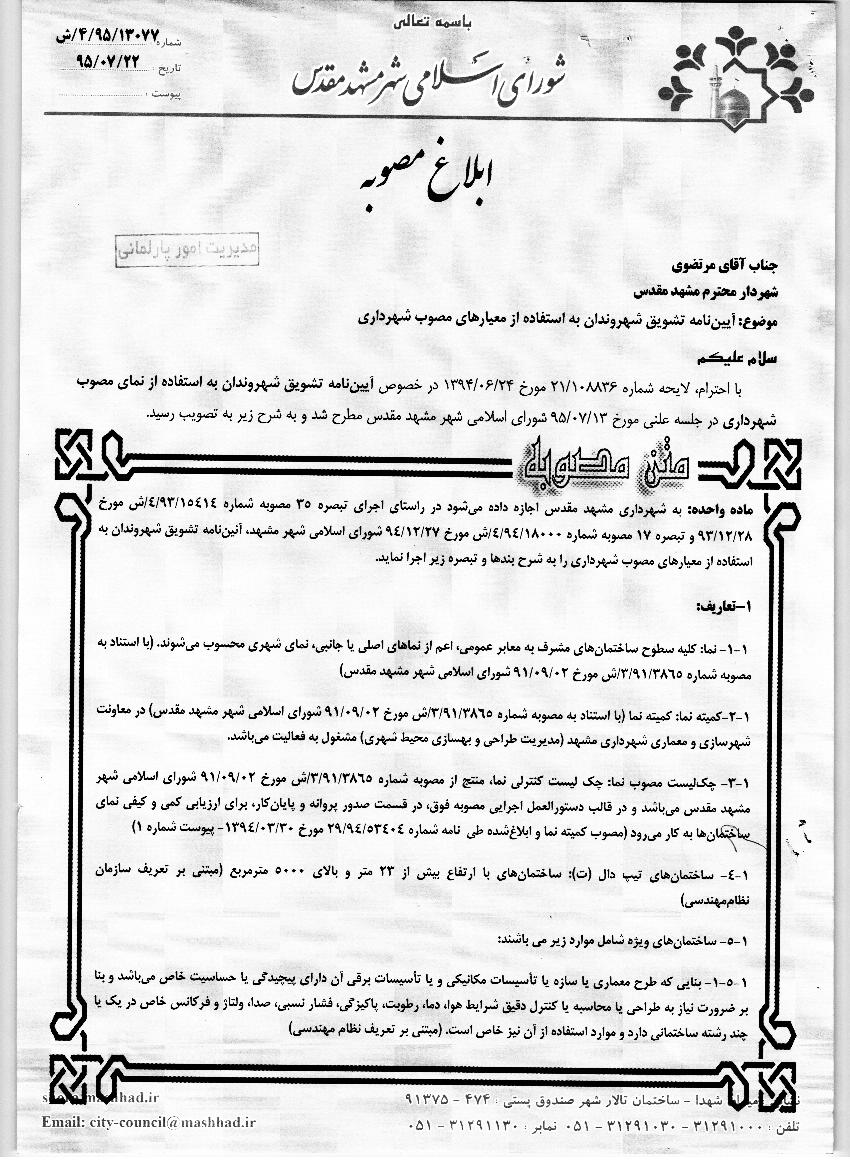 باسمه تعالی
شماره ۴/۹۵/۱۳۰۷۷/ش
تاریخ : ۹۵/۰۷/۲۲
پیوست :
شورای اسلامی شهر مشهد مقدس
ابلاغ مصوبه
مدیریت امور پارلمانی
جناب آقای مرتضوی
شهردار محترم مشهد مقدس
موضوع: آیین‌نامه تشویق شهروندان به استفاده از معیارهای مصوب شهرداری
سلام علیکم
با احترام، لایحه شماره ۲۱/۱۰۸۸۳۶ مورخ ۱۳۹۴/۰۶/۲۴ در خصوص آیین‌نامه تشویق شهروندان به استفاده از نمای مصوب
شهرداری در جلسه علنی مورخ ۹۵/۰۷/۱۳ شورای اسلامی شهر مشهد مقدس مطرح شد و به شرح زیر به تصویب رسید.
متن مصوبه
ماده واحده: به شهرداری مشهد مقدس اجازه داده می‌شود در راستای اجرای تبصره ۳۵ مصوبه شماره ۴/۹۳/۱۵۴۱۴/ش مورخ
۹۳/۱۲/۲۸ و تبصره ۱۷ مصوبه شماره ۴/۹۴/۱۸۰۰۰/ش مورخ ۹۴/۱۲/۲۷ شورای اسلامی شهر مشهد، آئین‌نامه تشویق شهروندان به
استفاده از معیارهای مصوب شهرداری را به شرح بندها و تبصره زیر اجرا نماید.
۱-تعاریف:
۱-۱- نما: کلیه سطوح ساختمان‌های مشرف به معابر عمومی، اعم از نماهای اصلی یا جانبی، نمای شهری محسوب می‌شوند. (با استناد به
مصوبه شماره ۳/۹۱/۳۸۶۵/ش مورخ ۹۱/۰۹/۰۲ شورای اسلامی شهر مشهد مقدس)
۱-۲-کمیته نما: کمیته نما (با استناد به مصوبه شماره ۳/۹۱/۳۸۶۵/ش مورخ ۹۱/۰۹/۰۲ شورای اسلامی شهر مشهد مقدس) در معاونت
شهرسازی و معماری شهرداری مشهد (مدیریت طراحی و بهسازی محیط شهری) مشغول به فعالیت می‌باشد.
۱-۳- چک‌لیست مصوب نما: چک لیست کنترلی نما، منتج از مصوبه شماره ۳/۹۱/۳۸۶۵/ش مورخ ۹۱/۰۹/۰۲ شورای اسلامی شهر
مشهد مقدس می‌باشد و در قالب دستورالعمل اجرایی مصوبه فوق، در قسمت صدور پروانه و پایان‌کار، برای ارزیابی کمی و کیفی نمای
ساختمان‌ها به کار می‌رود (مصوب کمیته نما و ابلاغ‌شده طی نامه شماره ۲۹/۹۴/۵۳۴۰۴ مورخ ۱۳۹۴/۰۳/۳۰- پیوست شماره ۱)
۱-۴- ساختمان‌های تیپ دال (ت): ساختمان‌های با ارتفاع بیش از ۲۳ متر و بالای ۵۰۰۰ مترمربع (مبتنی بر تعریف سازمان
نظام‌مهندسی)
۱-۵- ساختمان‌های ویژه شامل موارد زیر می باشند:
۱-۵-۱- بنایی که طرح معماری یا سازه یا تأسیسات مکانیکی و یا تأسیسات برقی آن دارای پیچیدگی یا حساسیت خاص می‌باشد و بنا
بر ضرورت نیاز به طراحی یا محاسبه یا کنترل دقیق شرایط هوا، دما، رطوبت، پاکیزگی، فشار نسبی، صدا، ولتاژ و فرکانس خاص در یک یا
چند رشته ساختمانی دارد و موارد استفاده از آن نیز خاص است. (مبتنی بر تعریف نظام مهندسی)
شهدا - ساختمان تالار شهر صندوق پستی : ۴۷۴ - ۹۱۳۷۵
تلفن : ۳۱۲۹۱۰۰۰ - ۳۱۲۹۱۰۳۰ - ۰۵۱ نمابر : ۳۱۲۹۱۱۳۰ - ۰۵۱
Email: city-council@mashhad.ir